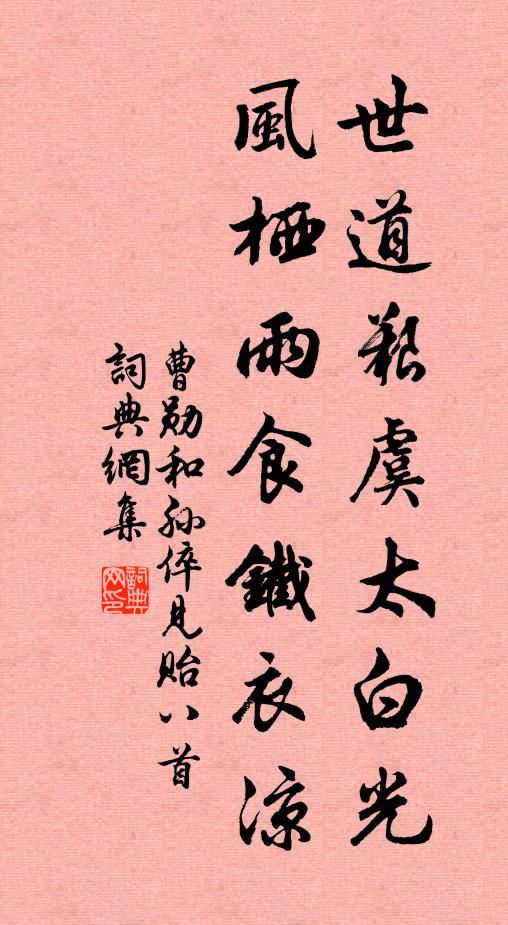 世道艱虞太白光
風栖雨食鐵衣涼
曹勛和孙倅見貽八首
詞典網集
詞典网印